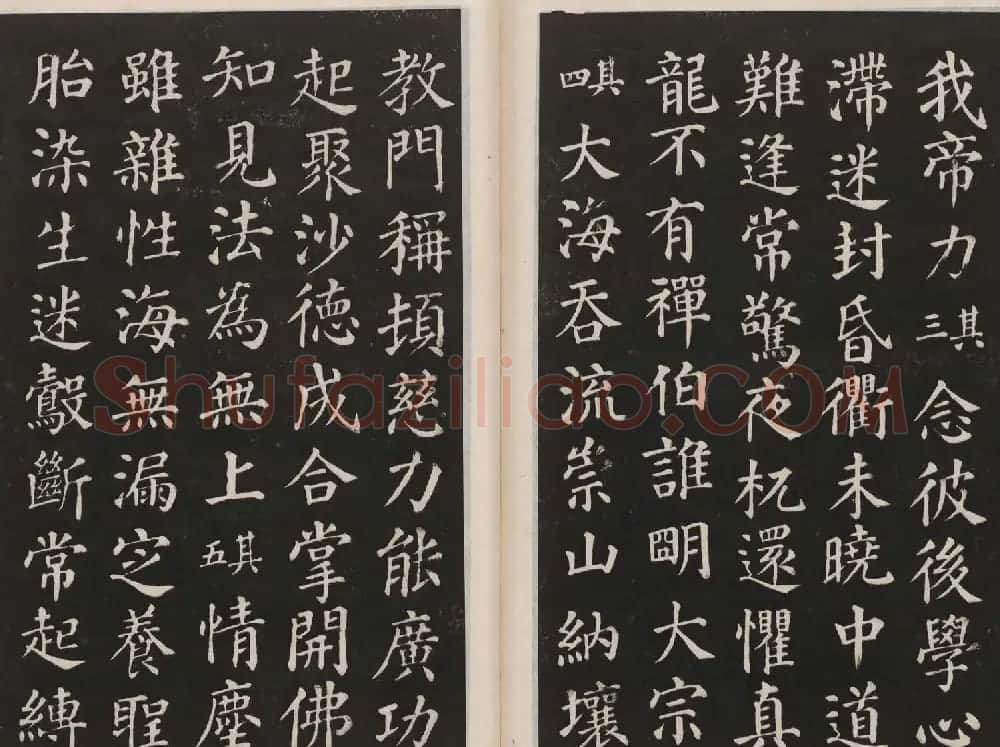 我帝力其三念彼後學心
滯迷封昏衢未曉中道
難逢常驚夜杌還懼真
龍不有禪伯誰朙大宗
其四大海吞流崇山納壤
教門稱頓慈力能廣功
起聚沙德成合掌開佛
知見法為無上其五情塵
雖雜性海無漏定養聖
胎染生迷鷇斷常起縛
Shufaziliao.COM